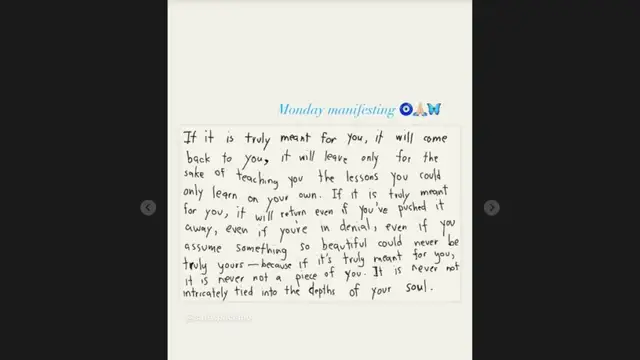 Monday manifesting 🧿🙏🏼🦋
If it is truly meant for you, it will come
back to you, it will leave only for the
sake of teaching you the lessons you could
only learn on your own. If it is truly meant
for you, it will return even if you've puched it
away, even if you're in denial, even if you
assume something so beautiful could never be
truly yours — because if it's truly meant for you,
it is never not a piece of you. It is never not
intricately tied into the depths of your soul.